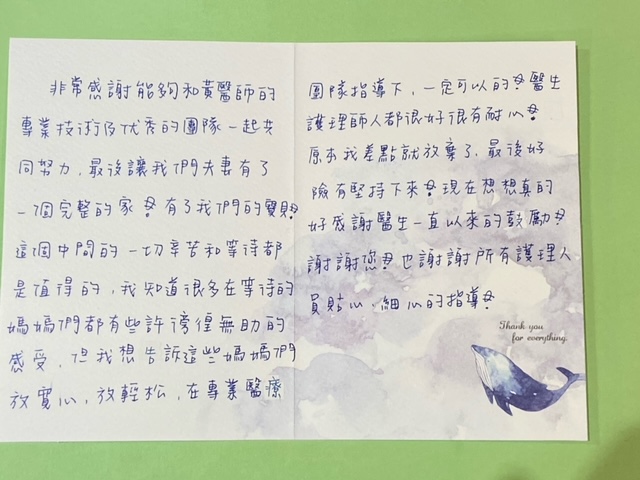 非常感謝能夠和黃醫師的
專業技術及優秀的團隊一起共
同努力，最後讓我們夫妻有了
一個完整的家！有了我們的寶貝！
這個中間的一切辛苦和等待都
是值得的，我知道很多在等待的
媽媽們都有些許徬徨無助的
感受，但我想告訴這些媽媽們
放寬心，放輕松，在專業醫療
團隊指導下，一定可以的！醫生
護理師人都很好很有耐心！
原本我差點就放棄了，最後好
險有堅持下來！現在想想真的
好感謝醫生一直以來的鼓勵！
謝謝您！也謝謝所有護理人
員貼心、細心的指導！
Thank you
for everything.